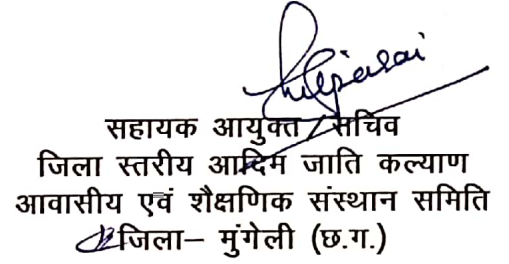 सहायक आयुक्त/सचिव
जिला स्तरीय आदिम जाति कल्याण
आवासीय एवं शैक्षणिक संस्थान समिति
जिला– मुंगेली (छ.ग.)